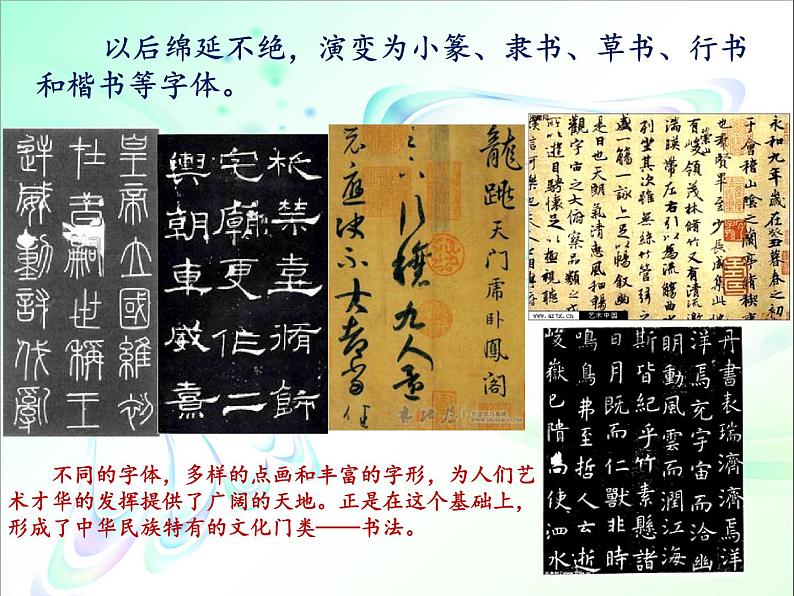 以后绵延不绝，演变为小篆、隶书、草书、行书
和楷书等字体。
皇帝立國維初
在昔嗣世稱王
逆威動討伐亂
柉禁壺脩飾
宅廟更作二
輿朝車威熹
龍跳天门虎卧鳳阁
永和九年歲在癸丑暮春之初
于會稽山陰之蘭亭脩稧事
也羣賢畢至少長咸集此
有崇山峻領茂林脩竹又有清流激
湍暎帶左右引以為流觴曲
列坐其次雖無絲竹管弦
盛一觴一詠亦足以暢敘幽
是日也天朗氣清惠風和暢
觀宇宙之大俯察品類之
以遊目騁懷足以極視聽
信可樂也
www.artx.cn 艺术中国
丹書表瑞濟濟焉洋
洋焉充宇宙而洽幽
明動風雲而潤江海
斯皆紀乎竹素懸諸
日月既而仁獸非時
鳴鳥弗至哲人云逝
峻嶽已隤尚使泗水
不同的字体，多样的点画和丰富的字形，为人们艺
术才华的发挥提供了广阔的天地。正是在这个基础上，
形成了中华民族特有的文化门类——书法。